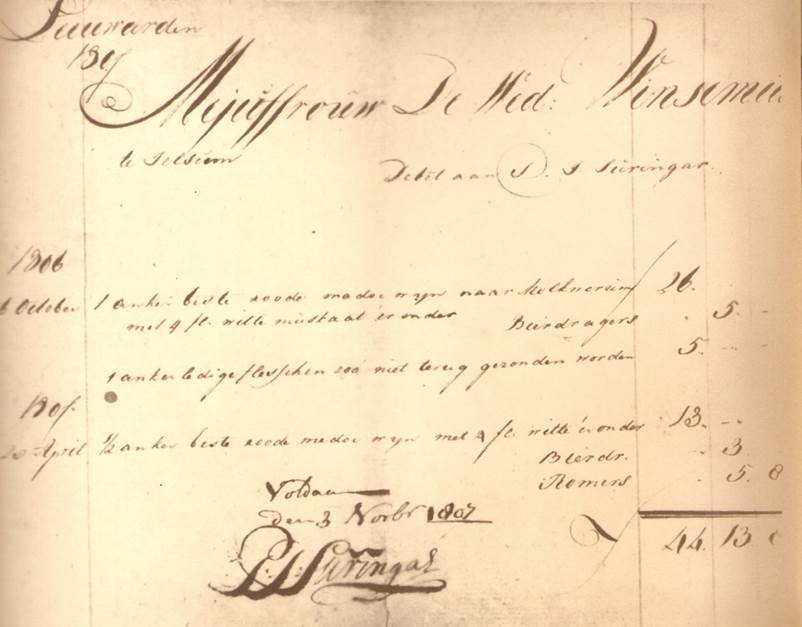 Leeuwarden
1807
Mejuffrouw De Wed: Winsemiu
te Jelsum
Debet aan P. J. Suringar
1806
6 October 1 anker beste roode medoc wyn naar 26. -
met 4 fl. witte muskaat er onder Bierdragers . 5. -
1 anker ledige flesschen zoo niet terug gezonden worden 5. -
1807
20 April 1/2 anker beste roode medoc wyn met 4 fl. witte er onder 13. -
Bierdr. . 3
Romers . 5. 8
Voldaan
den 3 Novbr 1807
44. 13.
P. J. Suringar